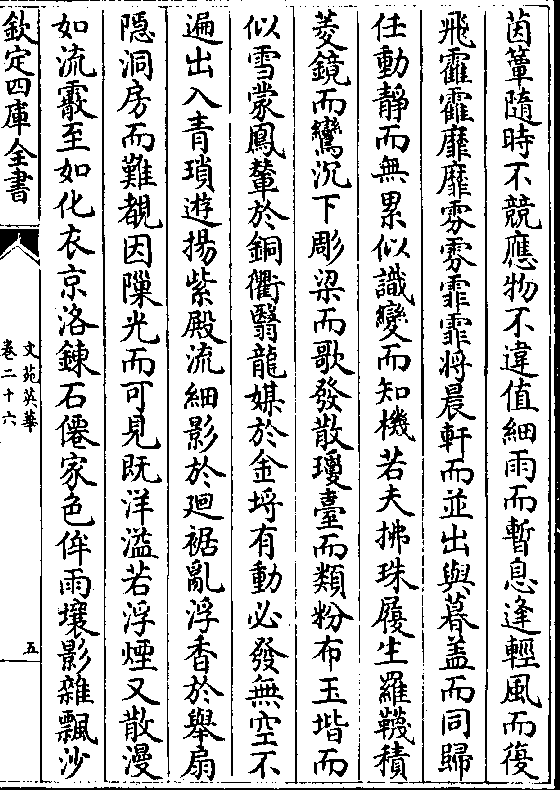 茵簟隨時不競應物不違值細雨而暫息逢輕風而復
飛霏霏靡靡雰雰霏霏將晨軒而並出與暮盖而同歸
任動靜而無累似識變而知機若夫拂珠履生羅韈積
菱鏡而鸞沉下彫梁而歌發散瓊臺而類粉布玉堦而
似雪蒙鳳輦於銅衢翳龍媒於金埒有動必發無空不
遍出入青瑣遊揚紫殿流細影於廻裾亂浮香於舉扇
隠洞房而難覩因隟光而可見既洋溢若浮煙又散漫
如流霰至如化衣京洛錬石僊家色侔雨壤影雜飄沙
欽定四庫全書
文苑英華
卷二十六
五